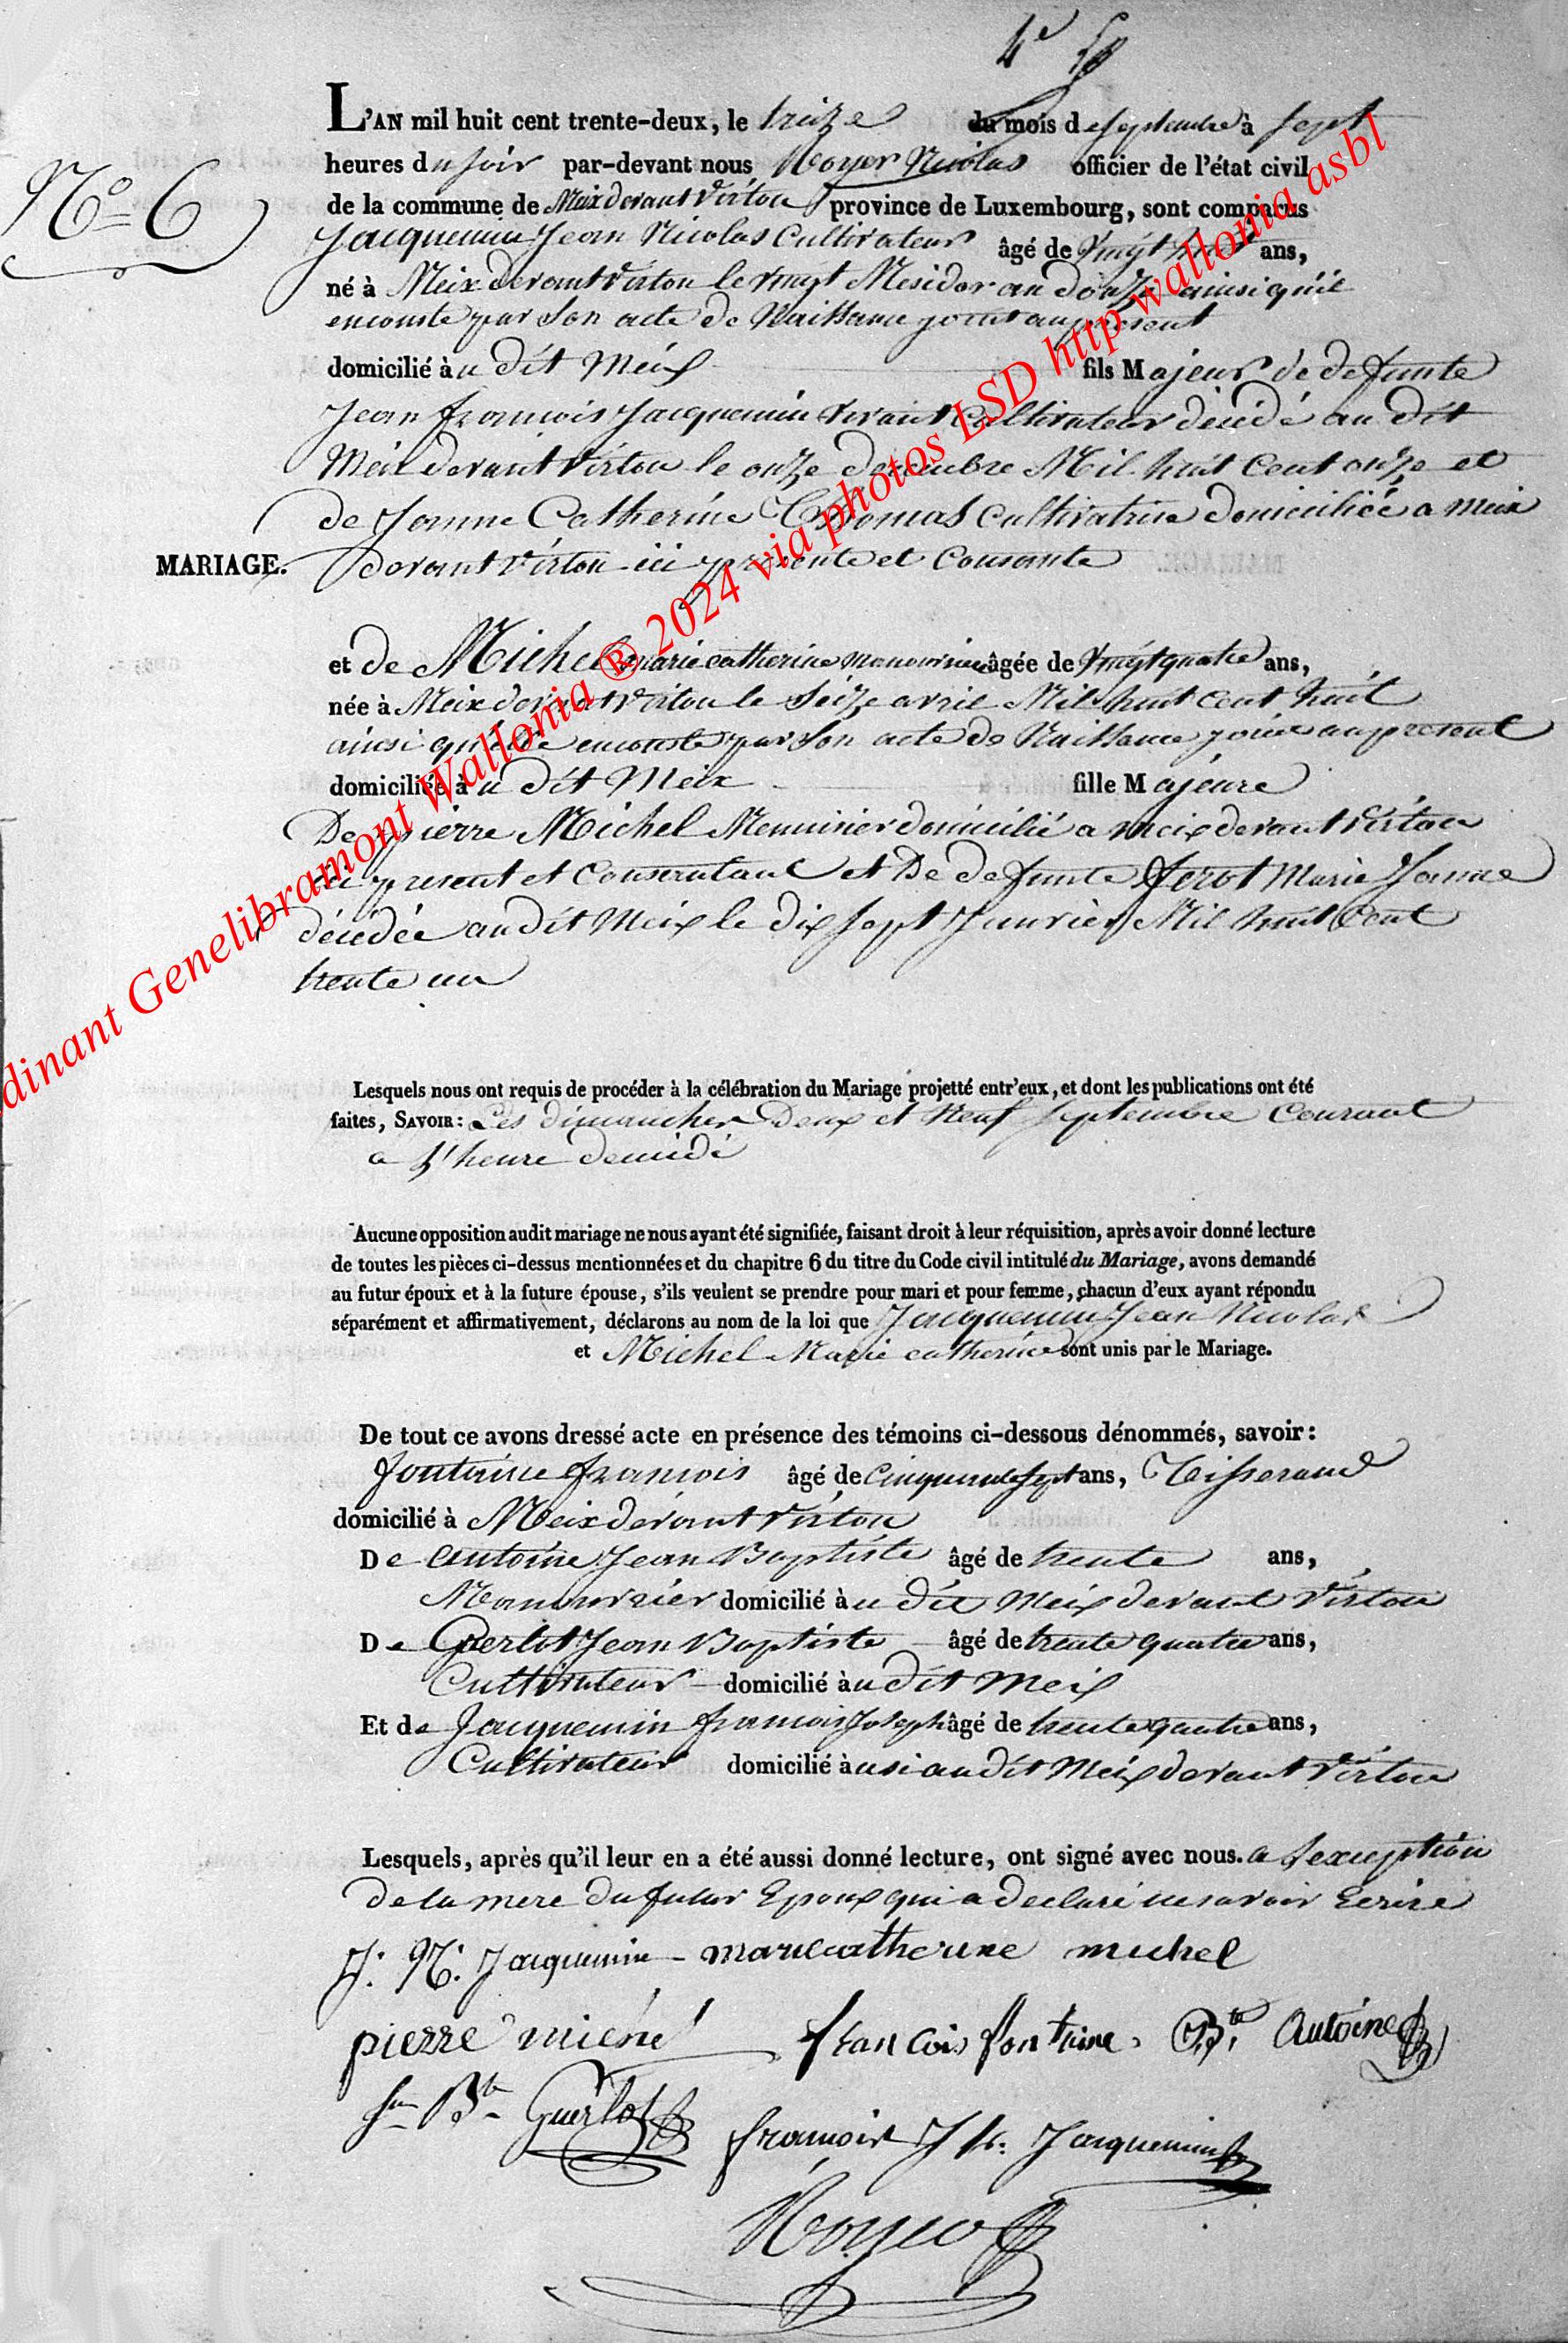 4e
L'AN mil huit cent trente-deux, le treize du mois de septembre à sept
heures du soir par-devant nous Noyer Nicolas officier de l'état civil
de la commune de Meix devant Virton province de Luxembourg, sont comparus
No 6
Jacquemin Jean Nicolas Cultivateur âgé de Vingt huit ans,
né à Meix devant Virton le vingt Mesidor an douze ainsi qu'il
enconste par Son acte de Naissance joint au present
domicilié àu dit Meix fils Majeur de defunte
Jean françois Jacquemin vivant Cultivateur décédé au dit
Meix devant Virton le onze decembre Mil huit Cent onze et
de Jeanne Catherine Thomas Cultivatrice domiciliée a Meix
MARIAGE. devant Virton ici presente et Consante
et de Michel marie catherine manouvriere âgée de Vingt quatre ans,
née à Meix devant Virton le Seize avril Mil huit Cent huit
ainsi qu'elle enconste par Son acte de Naissance joint au present
domiciliée àu dit Meix fille Majeure
De pierre Michel Menuisier domicilié a Meix devant Virton
ici present et Consentant et De defunte Jerot Marie Jeanne
décédée au dit Meix le dix sept Janvier Mil huit Cent
trente un
Lesquels nous ont requis de procéder à la célébration du Mariage projetté entr'eux, et dont les publications ont été
faites, SAVOIR: Les dimanches Deux et Neuf septembre Courant
a l'heure demidi
Aucune opposition audit mariage ne nous ayant été signifiée, faisant droit à leur réquisition, après avoir donné lecture
de toutes les pièces ci-dessus mentionnées et du chapitre 6 du titre du Code civil intitulé du Mariage, avons demandé
au futur époux et à la future épouse, s'ils veulent se prendre pour mari et pour femme, chacun d'eux ayant répondu
séparément et affirmativement, déclarons au nom de la loi que Jacquemin Jean Nicolas
et Michel Marie catherine sont unis par le Mariage.
De tout ce avons dressé acte en présence des témoins ci-dessous dénommés, savoir:
fontaine françois âgé de Cinquante Sept ans, Tisserand
domicilié à Meix devant Virton
De antoine Jean Baptiste âgé de trente ans,
Manouvrier domicilié àu dit Meix devant Virton
De Guerlot Jean Baptiste âgé de trente quatre ans,
Cultivateur domicilié àu dit Meix
Et de Jacquemin francois Joseph âgé de trente quatre ans,
Cultivateur domicilié àusi audit Meix devant Virton
Lesquels, après qu'il leur en a été aussi donné lecture, ont signé avec nous. a l'exception
de la mere du futur Epoux qui a declaré ne savoir Ecrire
J: N: Jacquemin marie catherine michel
pierre michel francois fontaine Bte Antoine
Jn Bte Guerlot francois Jh: Jacquemin
Noyer
dinant Genelibramont Wallonia ® 2024 via photos LSD http wallonia asbl